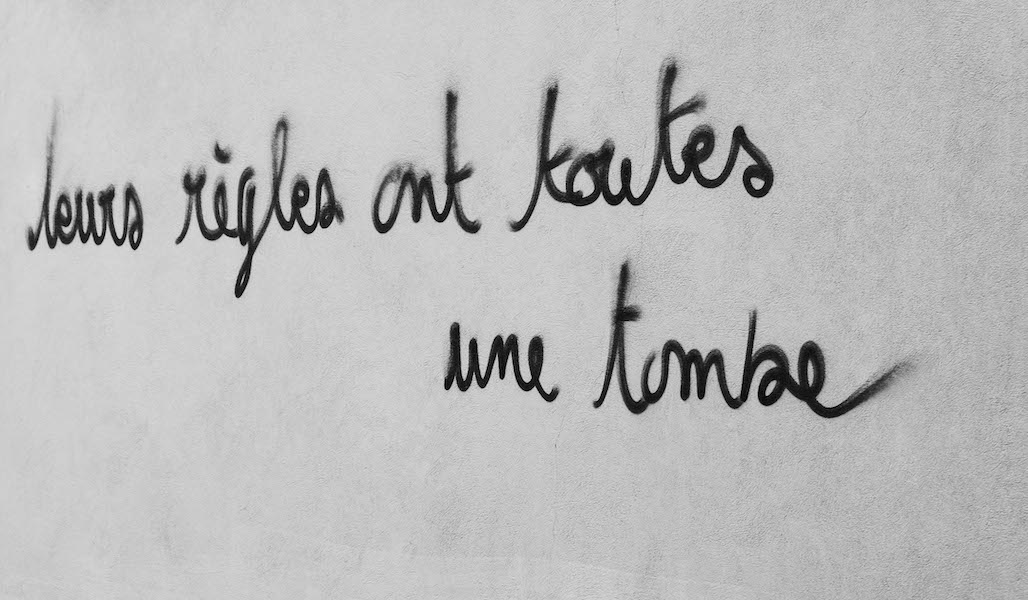 leurs règles ont toutes
une tombe